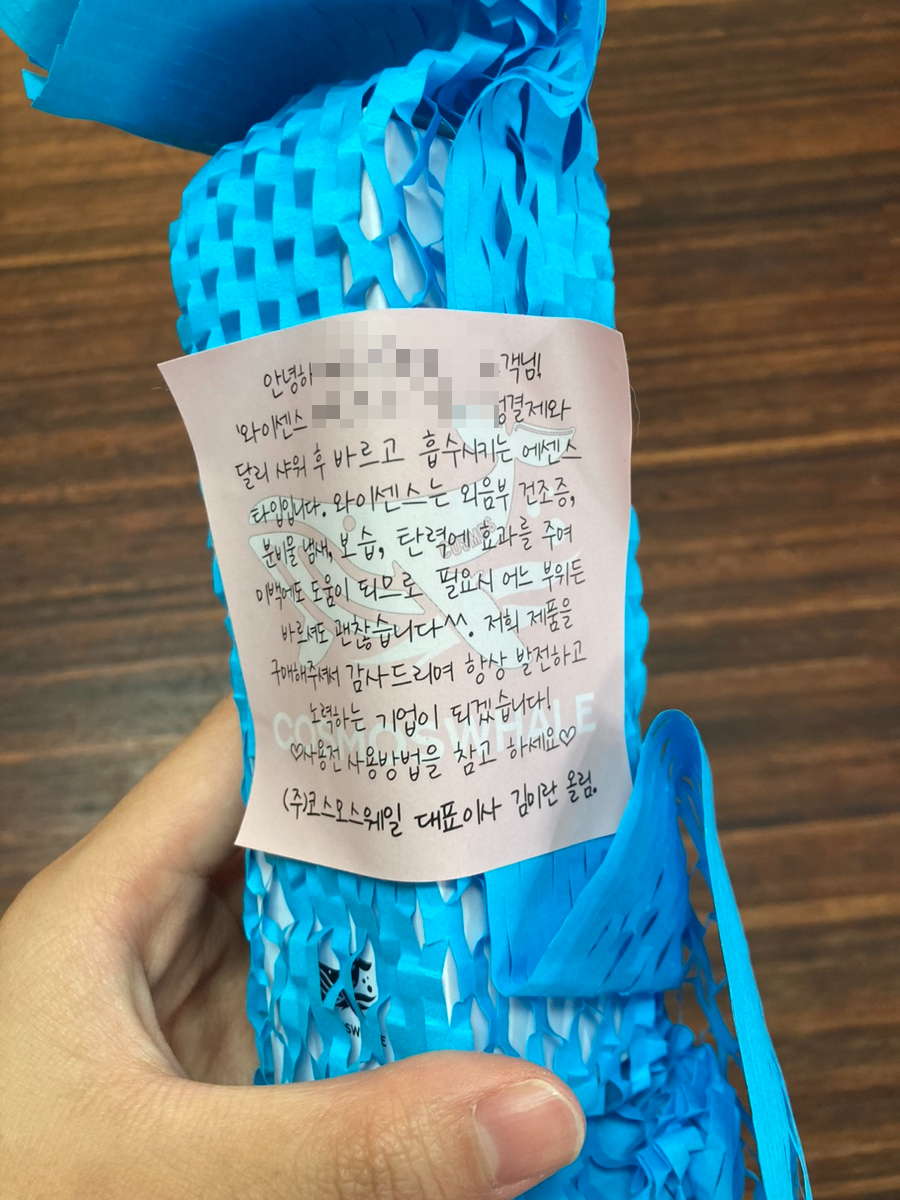 안녕하 객님!
'와이센스 성결제와
달리 샤워 후 바르고 흡수시키는 에센스
타입입니다. 와이센스는 외음부 건조증,
분비물 냄새, 보습, 탄력에 효과를 주며
미백에도 도움이 되므로 필요시 어느 부위든
바르셔도 괜찮습니다^^. 저희 제품을
구매해주셔서 감사드리며 항상 발전하고
노력하는 기업이 되겠습니다!
♡사용전 사용방법을 참고 하세요♡
(주)코스모스웨일 대표이사 김미란 올림.
COSMOS
COSMOSWHALE